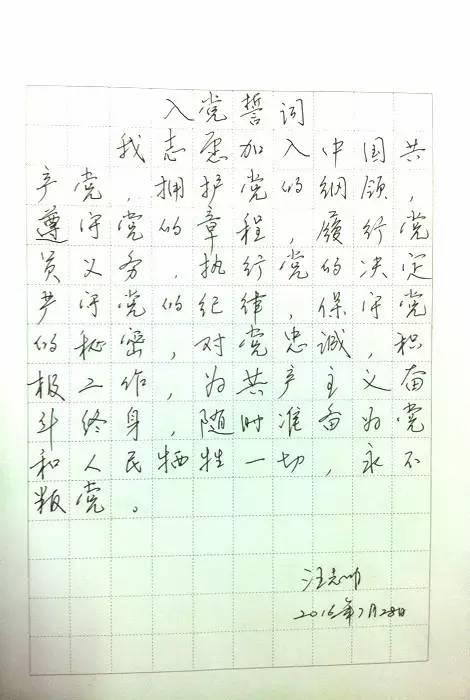 入党誓词
我志愿加入中国共
产党，拥护党的纲领，
遵守党的章程，履行党
员义务，执行党的决定
严守党的纪律，保守党
的秘密，对党忠诚，积
极工作，为共产主义奋
斗终身，随时准备为党
和人民牺牲一切，永不
叛党。
汪志帅
2016年7月28日